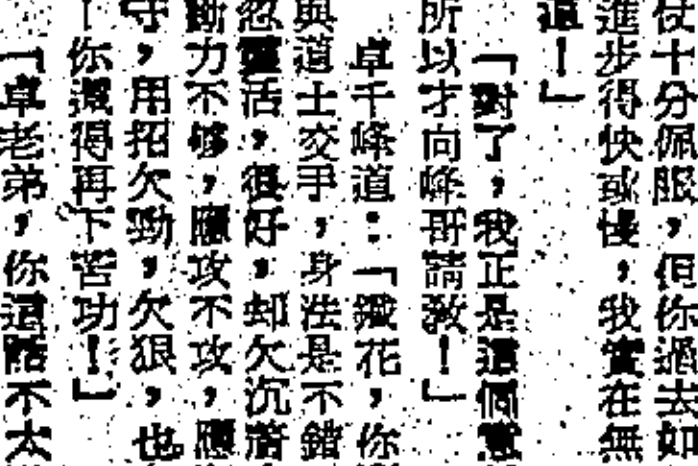 仗十分佩服，但你過去如
進步得快或慢，我實在無
道！」
「對了，我正是這個意
所以才向峰哥請教！」
卓千峰道：「鐵花，你
與道士交手，身法是不錯
忽靈活，很好，却欠沉著
斷力不够，應攻不攻，應
守，用招欠勁，欠狠，也
！你還得再下苦功！」
「卓老弟，你這話不太